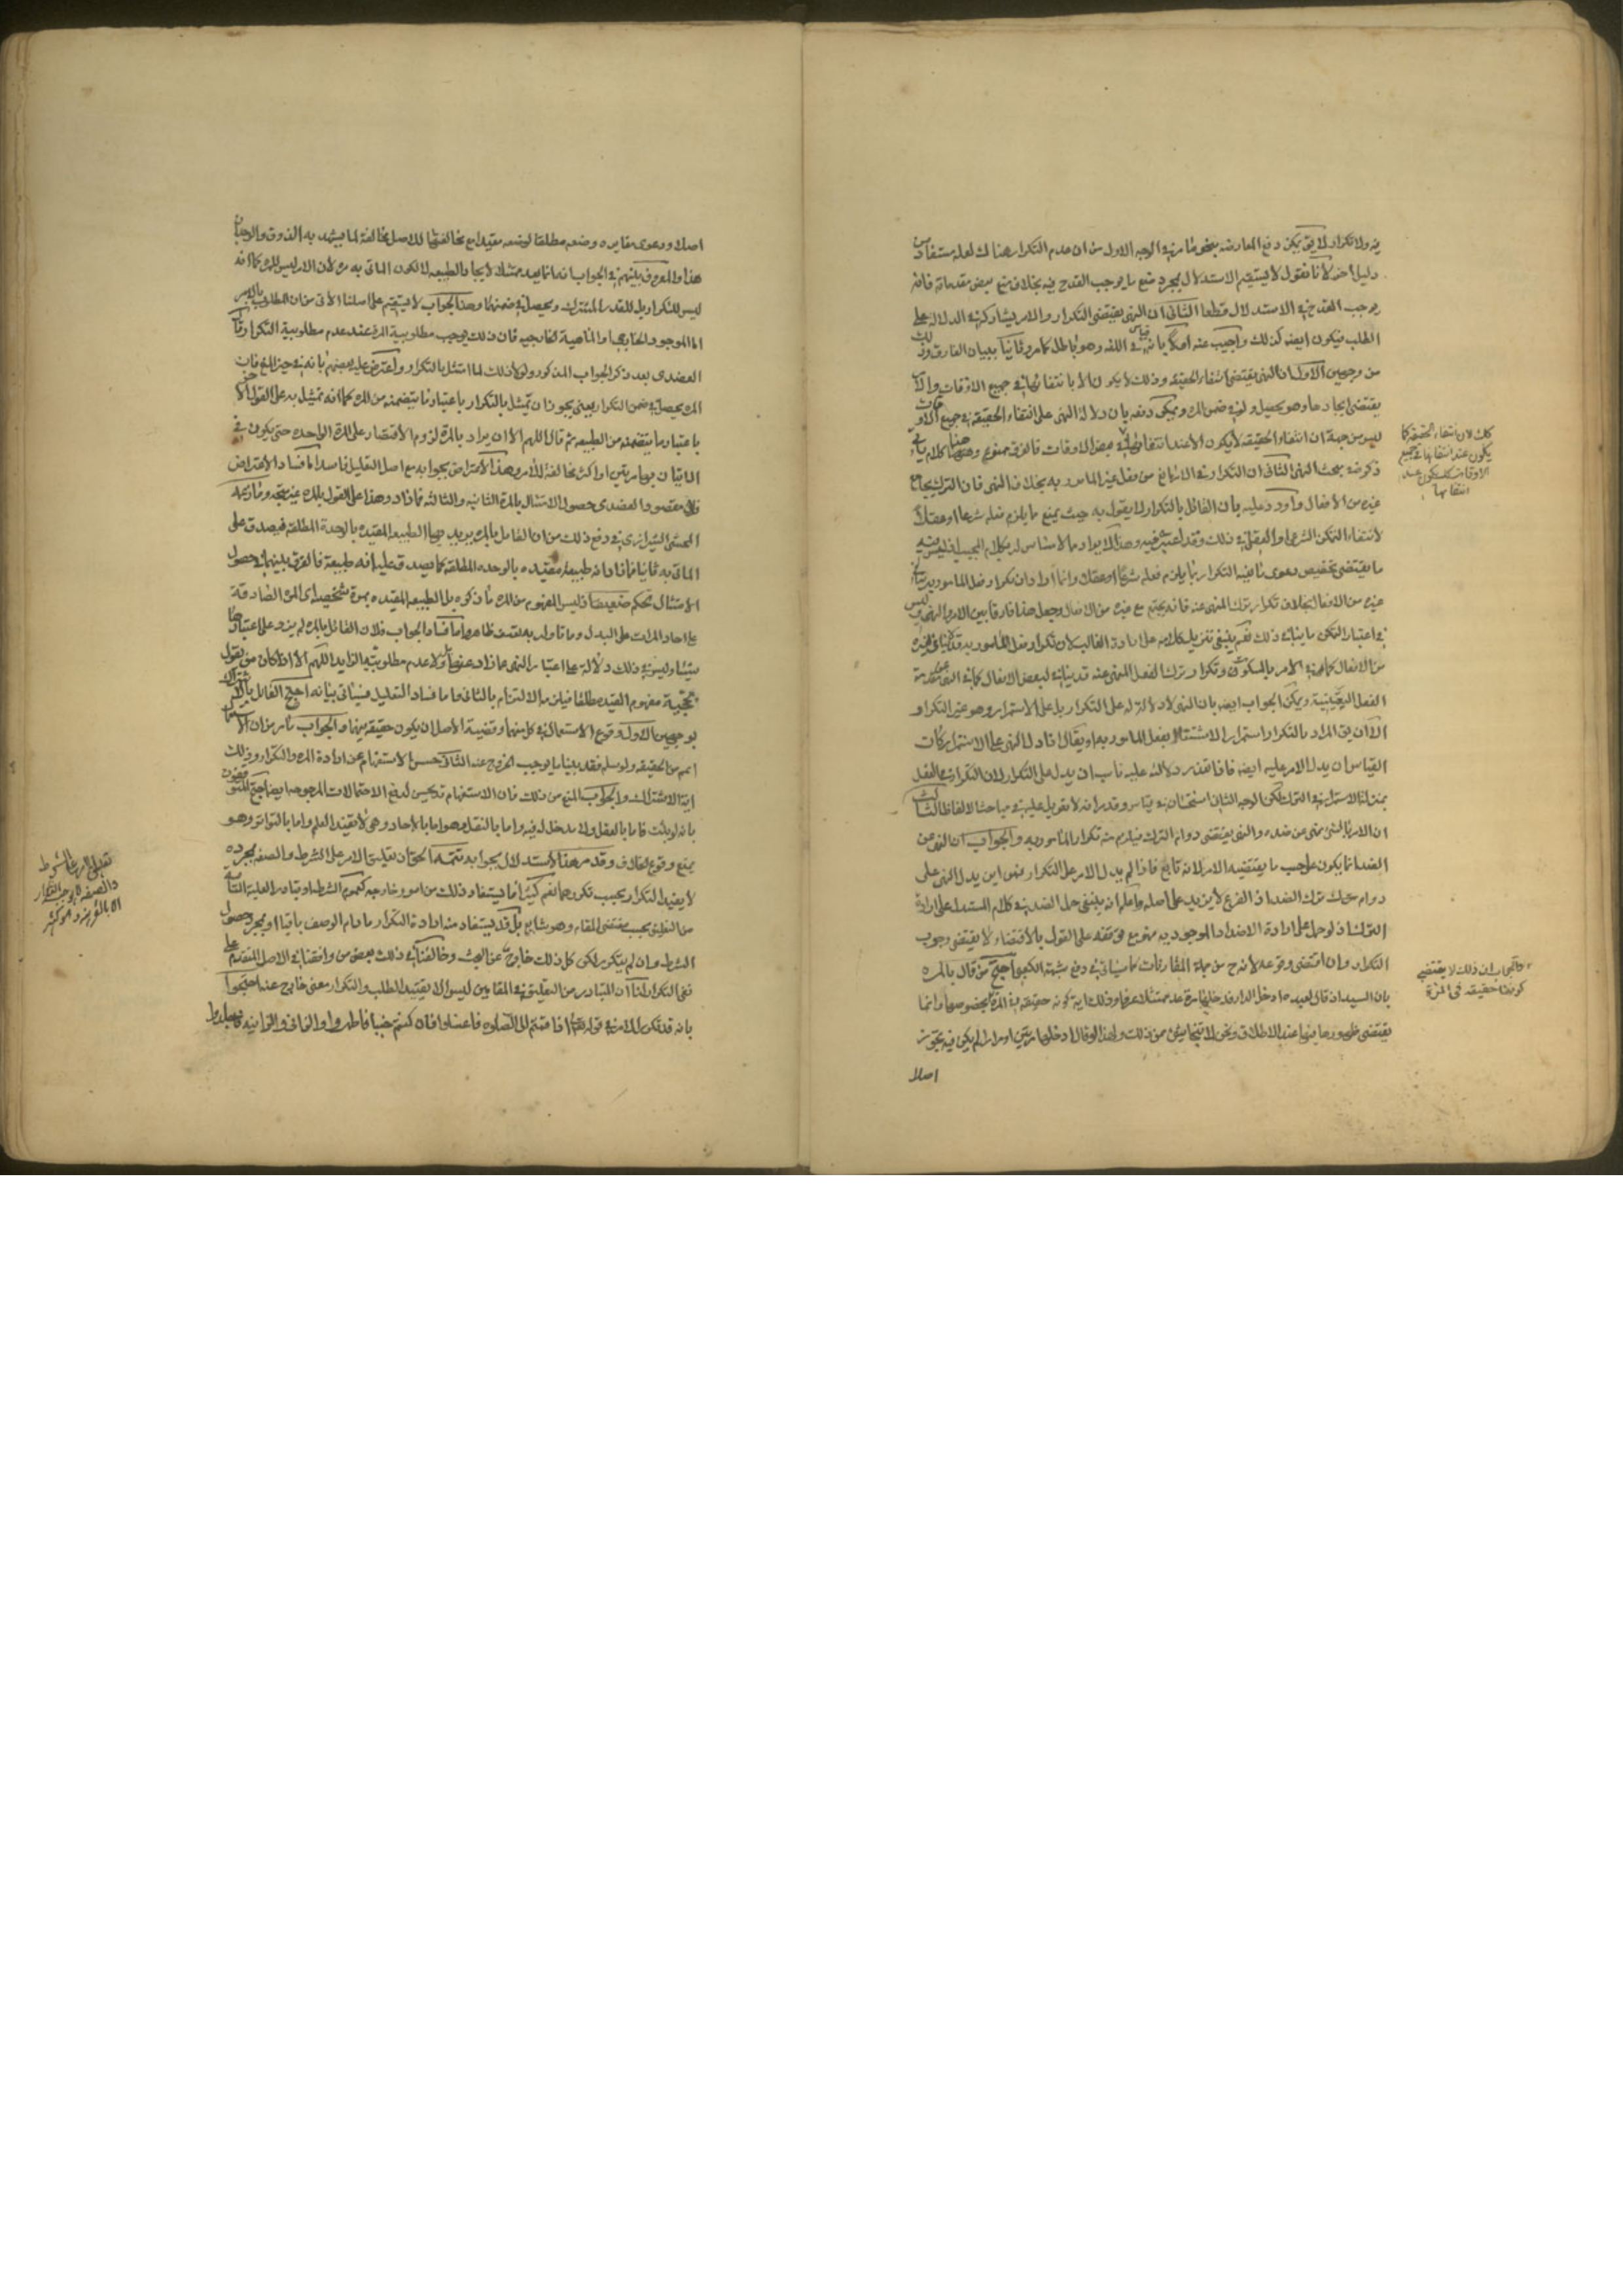 فيه ولا تكرار لا يق يمكن دفع المعارضه بنحو ما مر في الوجه الاول من ان عدم التكرار هناك لعله مستفاد من
دليل اخر لانا نقول لا يستقيم الاستدلال بمجرد منع ما يوجب القدح فيه بخلاف منع بعض مقدماته فانه
يوجب القدح في الاستدلال قطعا الثاني ان النهي يقتضي التكرار والامر يشاركه في الدلالة على
الطلب فيكون ايضه كذلك واجيب عنه اولا بانه قياس في اللغه وهو باطل كما مر وثانيا ببيان الفارق وذلك
من وجهين الاول ان النهي يقتضي انتفاء الحقيقه وذلك لا يكون الا بانتفائها في جميع الاوقات والامر
يقتضي ايجادها وهو يحصل ولو في ضمن المرة ويمكن دفعه بان دلالة النهي على انتفاء الحقيقه في جميع الاوقات
ليس من جهة ان انتفاء الحقيقه لا يكون الا عند انتفائها في بعض الاوقات فالفرق ممنوع وههنا كلام ياتي
ذكره في بحث النهي الثاني ان التكرار في الامر مانع من فعل غير المامور به بخلاف النهي فان الترك يجامع
غيره من الافعال واورد عليه بان القائل بالتكرار لا يقول به حيث يمنع ما يلزم فعله شرعا او عقلا
لانتفاء التمكن الشرعي او العقلي في ذلك وقد اعتبره فيه وهذا الايراد مما لا مساس له بكلام المجيب اذ ليس فيه
ما يقتضي تخصيص دعوى مانعيه التكرار بما يلزم فعله شرعا او عقلا وانما اراد ان تكرار فعل المامور به يمانع
غيره من الافعال بخلاف تكرار ترك المنهي عنه فانه يجتمع مع غيره من الافعال وجعل هذا فارقا بين الامر والنهي وليس
في اعتبار التمكن ما ينافي ذلك نعم ينبغي تنزيل كلامه على ارادة الغالب لان تكرار فعل المامور به قد لا ينافي غيره
من الافعال كما في الامر بالسكوت وتكرار ترك الفعل المنهي عنه قد ينافي لبعض الافعال كما في النهي عن مقدمة
الفعل ويمكن الجواب ايضه بان النهي لا دلالة له على التكرار بل على الاستمرار وهو غير التكرار
الا ان يق المراد بالتكرار استمرار الاشتغال بفعل المامور به او يقال اذا دل النهي على الاستمرار كان
القياس ان يدل الامر عليه ايضه فاذا تعذر دلالته عليه ناسب ان يدل على التكرار لان التكرار في الفعل
بمنزلة الاستمرار في الترك لكن الوجه الثاني استحسان في قياس وقد مر انه لا تعويل عليه في مباحث الالفاظ الثالث
ان الامر بالشيء نهي عن ضده والنهي يقتضي دوام الترك فيلزم منه تكرار المامور به والجواب ان النهي عن
الضد انما يكون على حسب ما يقتضيه الامر لانه تابع فاذا لم يدل الامر على التكرار فمن اين يدل النهي على
دوام ترك الضد اذ الفرع لا يزيد على اصله واعلم انه ينبغي حمل الضد في كلام المستدل على ارادة
الترك اذ لو حمل على ارادة الاضداد الموجوديه منع توقفه على القول بالاقتضاء لا يقتضي وجوب
التكرار وان اقتضى وقوعه لانه ح من جملة المقارنات كما سياتي في دفع شبهة الكعبي احتج من قال بالمره
بان السيد اذا قال لعبده ادخل الدار فدخلها مرة عد ممتثلا عرفا وذلك اية كونه حقيقه في المرة بخصوصها وانما
يقتضي ظهورها منها عند الاطلاق ونحن لا نتحاشى من ذلك ولهذا لو قال ادخلها مرتين او مرارا لم يكن فيه تجوز
اصلا
كذلك لان انتفاء الحقيقه كما
يكون عند انتفائها في جميع
الاوقات كذلك يكون عند
انتفائها
والجواب ان ذلك لا يقتضي
كونها حقيقه في المرة
اصلا ودعوى مغايرة وضعه مطلقا لوضعه مقيدا مع مخالفتها للاصل مخالفة لما يشهد به الذوق والوجدان
هذا والمعروف بينهم في الجواب انه انما يعد ممتثلا لايجاد الطبيعه لا لكون الماتي به مرة لان الامر ليس للمرة كما انه
ليس للتكرار بل للقدر المشترك ويحصل في ضمنهما وهذا الجواب لا يستقيم على اصلنا الاتي من ان المطلوب بالامر
اما الموجود الخارجي او الماهية الخارجيه فان ذلك يوجب مطلوبية المرة عند عدم مطلوبية التكرار وقال
العضدي بعد ذكر الجواب المذكور ولو لا ذلك لما امتثل بالتكرار واعترض عليه بعضهم بانه في حيز المنع فان
المرة يحصل في ضمن التكرار يعني يجوز ان يمتثل بالتكرار باعتبار ما يتضمنه من المرة كما انه تمتثل به على القول الاخر
باعتبار ما يتضمنه من الطبيعه ثم قال اللهم الا ان يراد بالمرة لزوم الاقتصار على المرة الواحده حتى يكون في
الاتيان به مرتين او اكثر مخالفة للامر وهذا الاعتراض بجوابه مع اصل التعليل فاسد اما فساد الاعتراض
فلان مقصود العضدي حصول الامتثال بالمرة الثانيه والثالثه فما زاد وهذا على القول بالمرة غير متجه وما ذكره
المحشي الشيرازي في دفع ذلك من ان القائل بالمرة يريد بها الطبيعه المقيده بالوحدة المطلقة فيصدق على
الماتي به ثانيا فما زاد انه طبيعة مقيده بالوحده المطلقة كما يصدق عليه انه طبيعة فالفرق بينهما في حصول
الامتثال تحكم ضعيف اذ ليس المفهوم من المرة ما ذكره بل الطبيعه المقيده بمرة شخصيه اي المرة الصادقة
على احاد المرات على البدل وما تاوله به تعسف ظاهر واما فساد الجواب فلان القائل بالمرة لم يزد على اعتبارها
شيئا وليس في ذلك دلالة على اعتبار النهي عما زاد عنها بل ولا عدم مطلوبيه الزايد اللهم الا اذا كان ممن يقول
بحجية مفهوم القيد مطلقا فيلزمه الالتزام بالثاني واما فساد التعليل فسياتي بيانه احتج القائل بالاشتراك
بوجهين الاول وقوع الاستعمال في كل منهما وقضية الاصل ان يكون حقيقه فيهما والجواب ما مر من ان الاستعمال
اعم من الحقيقه ولو سلم فقد بينا ما يوجب الخروج عنه الثاني حسن الاستفهام عن ارادة المرة والتكرار وذلك
اية الاشتراك والجواب المنع من ذلك فان الاستفهام قد يحسن لدفع الاحتمالات المرجوحه ايضا احتج المتوقفون
بانه لو ثبت فاما بالعقل ولا مدخل له فيه واما بالنقل وهو اما بالاحاد وهي لا تفيد العلم واما بالتواتر وهو
يمنع وقوع الخلاف وقد مر هذا الاستدلال بجوابه تتمة الحق ان تعليق الامر على الشرط والصفه بمجرده
لا يفيد التكرار بحسب تكررهما نعم كثيرا ما يستفاد ذلك من امور خارجه كعموم الشرط او تبادر العلية التامة
من التعليق بحسب مقتضى المقام وهو شايع بل قد يستفاد منه ارادة التكرار ما دام الوصف باقيا او بمجرد حصول
الشرط وان لم يتكرر لكن كل ذلك خارج عن البحث وخالفنا في ذلك بعض من وافقنا في الاصل المتقدم على
نفي التكرار لنا ان المتبادر من التعليق في المقامين ليس الا تقييد الطلب والتكرار معنى خارج عنه احتجوا
بانه قد تكرر الامر في قوله تعالى اذا قمتم الى الصلوة فاغسلوا وان كنتم جنبا فاطهروا والزاني والزانية فاجلدوا
تعليق الامر على الشرط
والصفه لا يوجب التكرار
الا بالقرينه وهو كثير